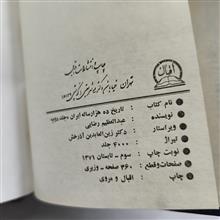 چاپ و انتشارات اقبال
تهران
اقبال
نام کتاب : تاریخ ده هزار ساله ایران «جلد
نویسنده : عبدالعظیم رضایی
ویراستار : دکتر زین‌العابدین آذرخش
تیراژ : ۴۰۰۰ جلد
نوبت چاپ : سوم - تابستان ۱۳۷۱
صفحات و قطع : صفحه - وزیری
چاپ : اقبال و مروی